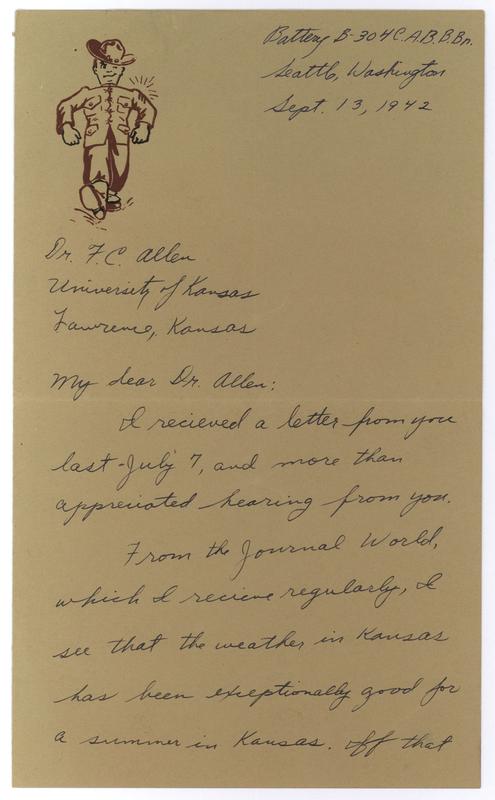 Battery B-304 C.A.B.B.Bn.
Seattle, Washington
Sept. 13, 1942
Dr. F.C. Allen
University of Kansas
Lawrence, Kansas
My dear Dr. Allen:
I recieved a letter from you
last July 7, and more than
appreciated hearing from you.
From the Journal World,
which I recieve regularly, I
see that the weather in Kansas
has been exceptionally good for
a summer in Kansas. Off that